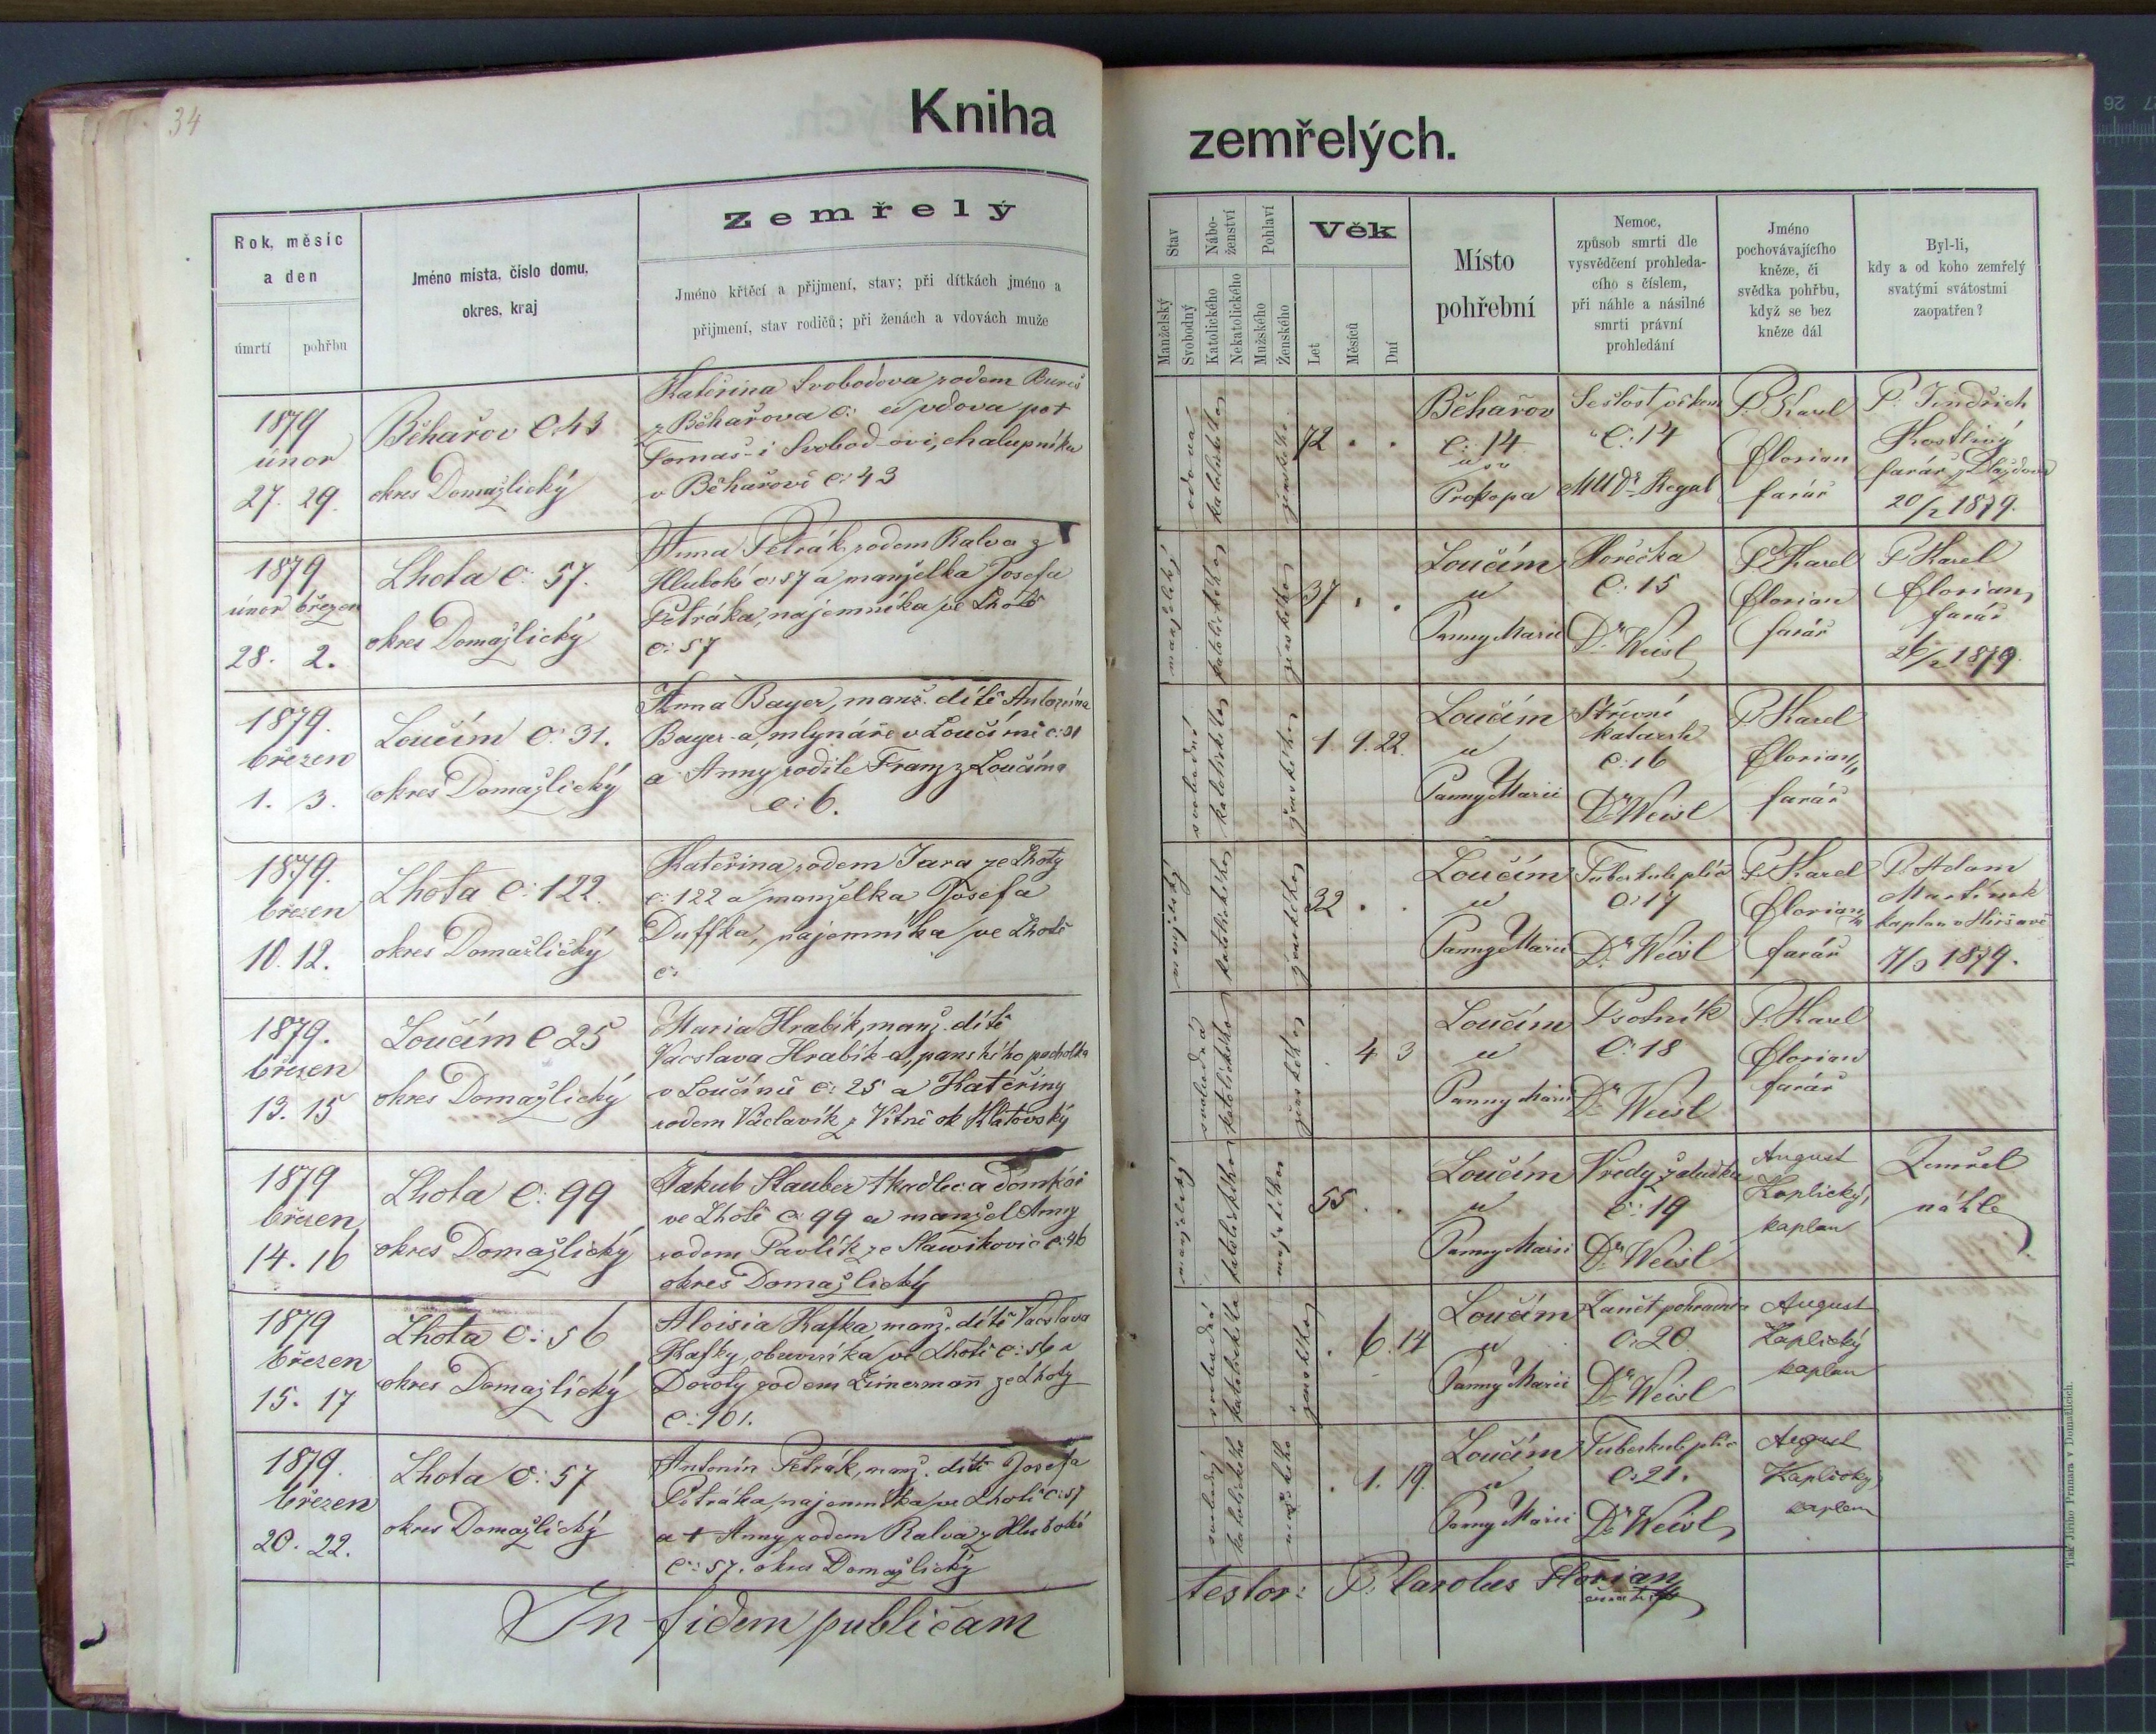 34
Kniha zemřelých.
Rok, měsíc
a den
úmrtí pohřbu
Jméno místa, číslo domu,
okres, kraj
Zemřelý
Jméno křtěcí a příjmení, stav; při dítkách jméno a
příjmení, stav rodičů; při ženách a vdovách muže
Stav
Manželský
Svobodný
Nábo-
ženství
Katolického
Nekatolického
Pohlaví
Mužského
Ženského
Věk
Let
Měsíců
Dní
Místo
pohřební
Nemoc,
způsob smrti dle
vysvědčení prohleda-
cího s číslem,
při náhle a násilné
smrti právní
prohledání
Jméno
pochovávajícího
kněze, či
svědka pohřbu,
když se bez
kněze dál
Byl-li,
kdy a od koho zemřelý
svatými svátostmi
zaopatřen?
1879
únor
27. 29.
Běhařov č. 43
okres Domažlický
Kateřina Svobodova rodem Bureš
z Běhařova č: vdova po †
Tomaš-i Svobod-ovi, chalupníku
v Běhařově č: 43
katolického
ženského
72 . .
Běhařov
č: 14
u sv
Prokopa
Sešlost věkem
č: 14
MUDr Regal
P. Karel
Florian
farář
P. Jindřich
Kostlivý
farář z Dlaždova
20/2 1879.
1879
únor březen
28. 2.
Lhota č: 57.
okres Domažlický
Anna Petrák, rodem Ralva z
Hluboké č: 57 a manželka Josefa
Petráka, najemníka ve Lhotě
č: 57
manželská
katolického
ženského
37 . .
Loučím
u
Panny Marii
Horečka
č: 15
Dr Weisl
P. Karel
Florian
farář
P. Karel
Florian,
farář
26/2 1879.
1879.
březen
1. 3.
Loučím č: 31.
okres Domažlický
Anna Bayer, manž. dítě Antonína
Bayer-a, mlynáře v Loučímě č: 31
a Anny rodilé Franz z Loučíma
č: 6.
svobodná
katolického
ženského
1 9. 22.
Loučím
u
Panny Marii
Střevní
katarrh
č: 16
Dr Weisl
P. Karel
Florian,
farář
1879.
březen
10. 12.
Lhota č: 122.
okres Domažlický
Kateřina rodem Jara ze Lhoty
č: 122 a manželka Josefa
Duffka, najemníka ve Lhotě
č:
katolického
ženského
32 . .
Loučím
u
Panny Marii
Tuberkule plíc
č: 17
Dr Weisl
P. Karel
Florian,
farář
P. Adam
Martínek
kaplan v
7/3 1879.
1879.
březen
13. 15
Loučím č 25
okres Domažlický
Maria Hrabík, manž. dítě
Vácslava Hrabík-a, panského pacholka
v Loučímě č: 25 a Kateřiny
rodem Václavík z Vitně ok Klatovský
svobodná
katolického
ženského
. 4 3
Loučím
u
Panny Marii
Psotník
č: 18
Dr Weisl
P. Karel
Florian
farář
1879
březen
14. 16
Lhota č: 99
okres Domažlický
Jakub Stauber tkadlec a domkář
ve Lhotě č: 99 a manžel Anny
rodem Pavlík ze Slawikovic č: 46
okres Domažlický
manželský
katolického
mužského
55 . .
Loučím
u
Panny Marii
Vředy žaludka
č: 19
Dr Weisl
August
Kaplický,
kaplan
Zemřel
náhle
1879
březen
15. 17
Lhota č: 56
okres Domažlický
Aloisia Kafka, manž. dítě Vácslava
Kafky, obuvníka ve Lhotě č: 56 a
Doroty rodem Zimermann ze Lhoty
č: 101.
svobodná
katolického
ženského
. 6. 14
Loučím
u
Panny Marii
Zanět pohrudnice
č: 20.
Dr Weisl
August
Kaplický
kaplan
1879.
březen
20. 22.
Lhota č: 57
okres Domažlický
Antonín Petrák, manž. dítě Josefa
Petráka, najemníka ve Lhotě č: 57
a † Anny rodem Ralva z Hluboké
č: 57. okres Domažlický
svobodný
katolického
mužského
. 1. 19.
Loučím
u
Panny Marii
Tuberkule plic
č: 21.
Dr Weisl,
August
Kaplický
kaplan
In fidem publicam testor: P. Carolus Florian
Tisk Jiřího Prunara v Domažlicích.